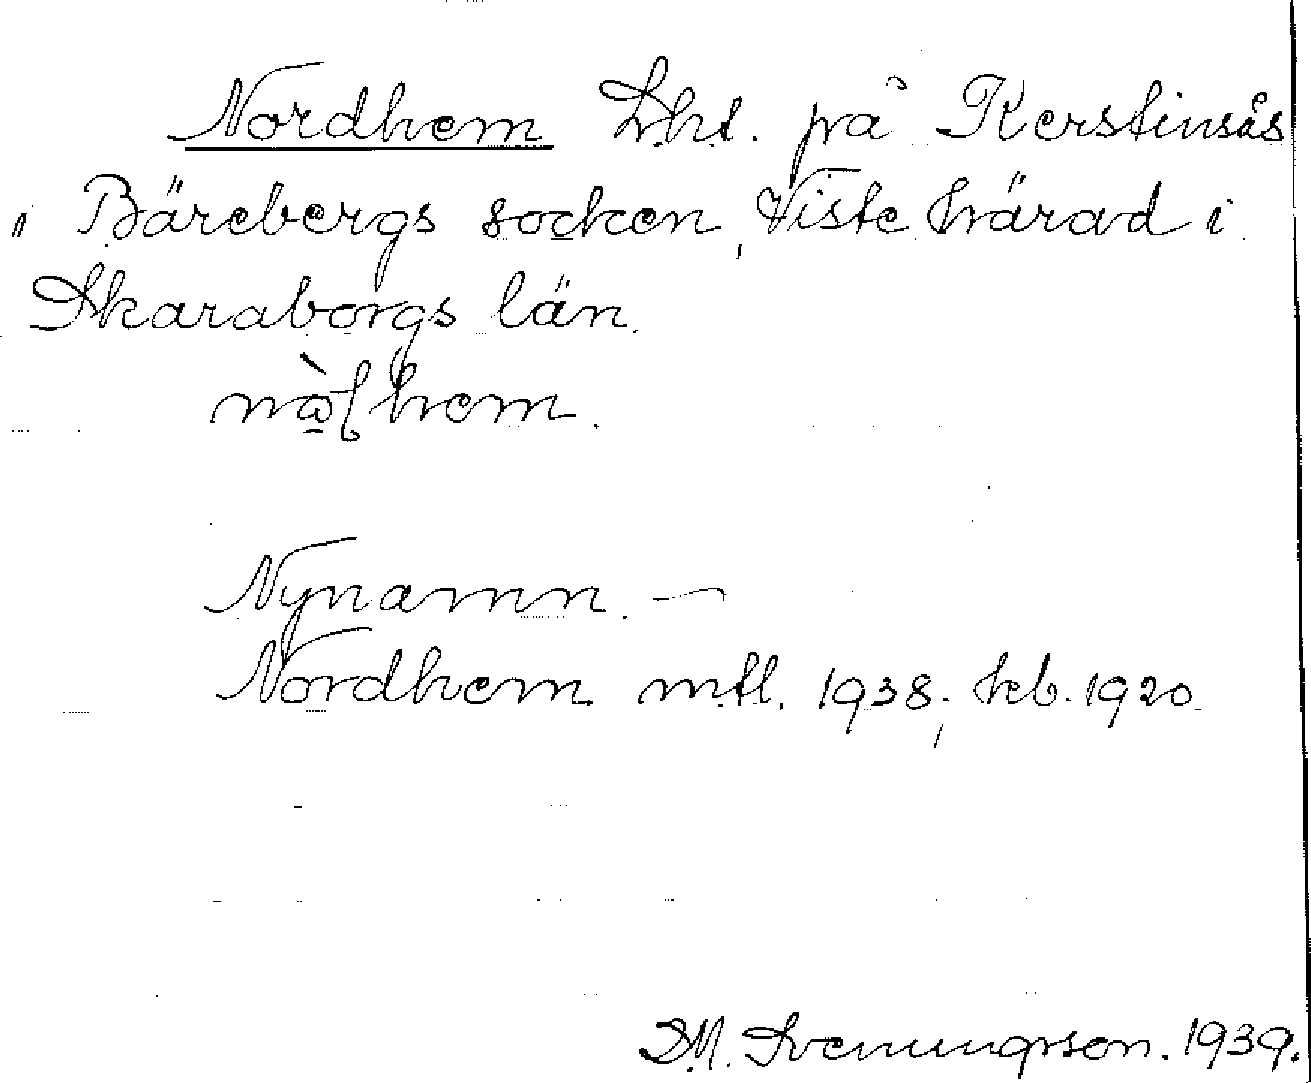 Nordhem Lht. på Kerstinsås
i Bärebergs socken, Viste härad i
Skaraborgs län.
Nynamn. —
Nordhem mtl. 1938; kb. 1920
D.M. Svenungsson. 1939.